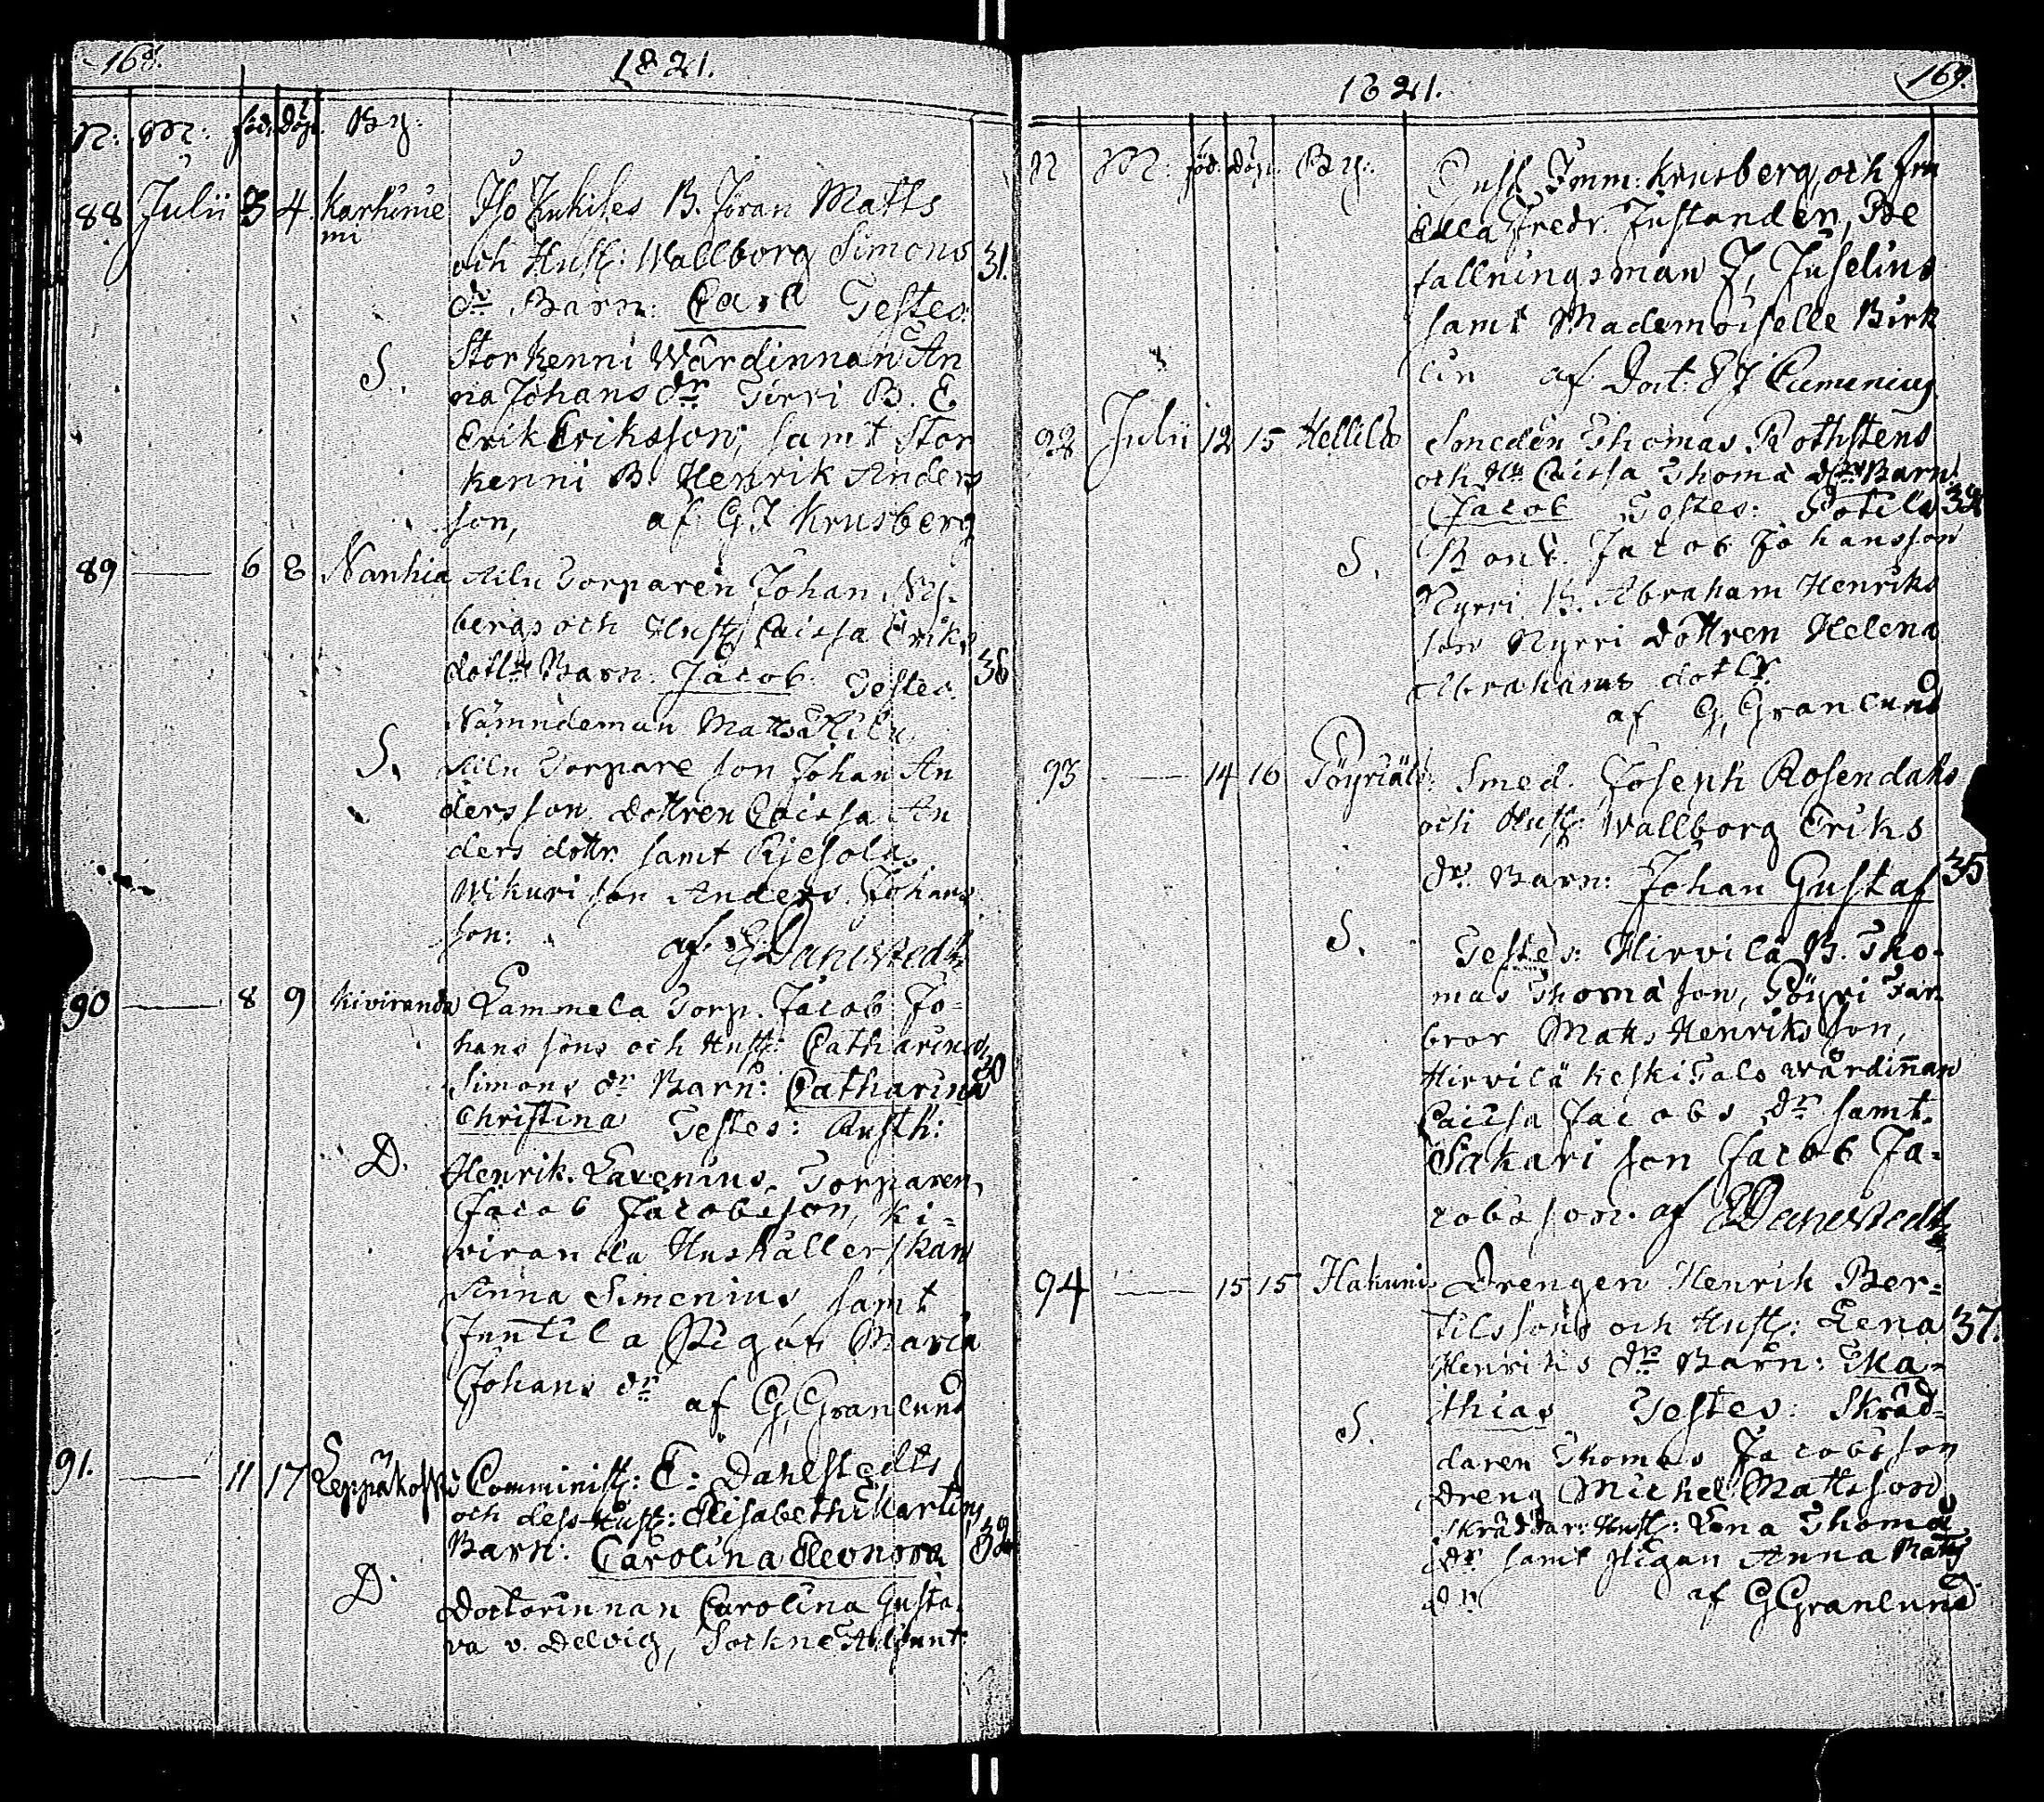 168.
1821.
N: M: föd. Döpt. By:
88 Julii 3 4. Karhinie
mi
Iso Kukiles B. Jöran Matts
och Hust: Wallborg Simons
dr Barn: Carl Testes:
31.
S.
Storkenni Wärdinnan An
na Johans dr Tirri B. E
Erik Eriksson, samt Stor
kenni B. Henrik Anders
son, af G I Krusberg
89 — 6 8 Nanhia
Ailu Torparen Johan Ny-
bergs och Hust: Caissa Eriks
dottr Barn: Jacob. Testes.
36
Nämndeman Matts Ailu
S.
Ailu Torpare son Johan An
dersson Dottren Caissa An
ders dottr samt Kjesola
Wikuri son Anders Johans
son: af E Dahlstedt
90 — 8 9 Kiviranda
Lammela Torp. Jacob Jo-
hans sons och Hust: Catharina
Simons dr Barn: Catharina
30
Christina Testes: Rusth:
D.
Henrik Lavenius, Torparen
Jacob Jacobsson, Ki-
viranda Hushållerskan
Anna Simenius samt
Junttila Pigan Maria
Johans dr af G Granlund
91. — 11 17 Leppäkoski
Comminist: E: Dahlstedts
och dess Hust: Elisabeth Martins
Barn: Carolina Eleonora
32
D.
Doctorinnan Carolina Gusta-
va v. Delvig, Sockne Adjunt
169.
1821.
N M: föd. Döpt. By:
Emm: Krusberg, och fru
Ulla Fredr. Justander, Be
fallningsman J, Juselius
samt Mademoiselle Birk
lin af Doct: E J Cumenius
92 Julii 12 15 Hellilä
Soneden Thomas Rothstens
och Hu Caissa Thomä dr Barn:
Jacob Testes: Potila
32
S.
Bond. Jacob Johansson
Nyrri B. Abraham Henriks
son Nyrri Dottren Helena
Abrahams dottr.
af G, Granlund
93 — 14 16 Pöyriälä:
Smed. Joseph Rosendahls
och Hust: Wallborg Eriks
dr. Barn: Johan Gustaf
35
S.
Testes: Hirvilä B. Tho-
mas Thomä son, Pöyri Far
bror Matts Henriks son,
Hirvilä Keskitalo wärdinnan
Caissa Jacobs dr samt
Sakari son Jacob Ja-
cobsson. af E Dahlstedt
94 — 15 15 Hakuni
Drengen Henrik Ber-
tilssons och Hust: Lena
37.
Henriks dr Barn: Ma-
thias Testes: Skräd-
S.
daren Thomas Jacobsson
Dreng Michel Mattsson,
Skräddar: Hust: Lena Thomä
dr samt Pigan Anna Matts
dr af G Granlund